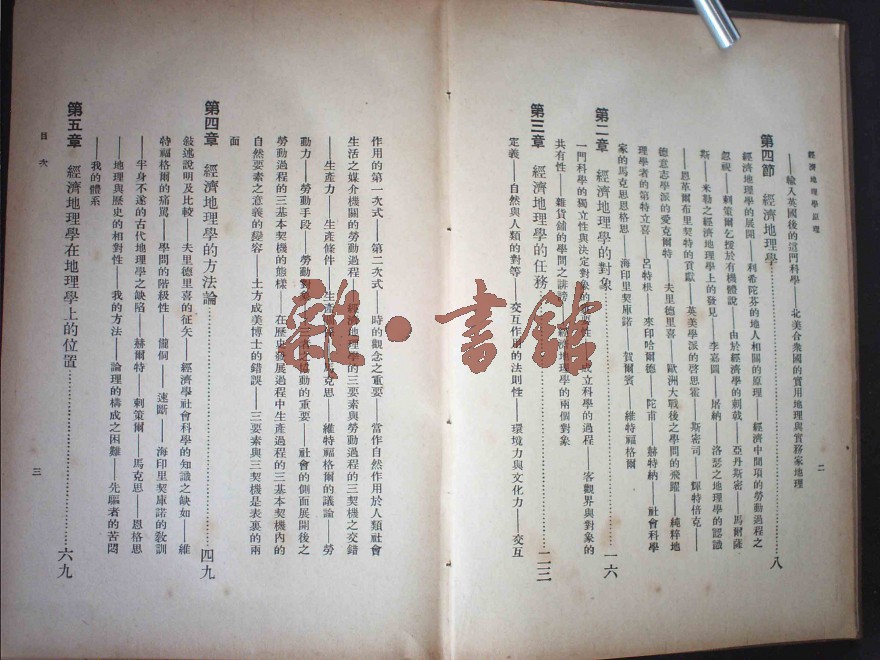 經濟地理學原理
二
——輸入英國後的這門科學——北美合衆國的實用地理與實務家地理
第四節 經濟地理學……八
經濟地理學的展開——利希陀芬的地人相關的原理——經濟中間項的勞動過程之
忽視——剌策爾乞援於有機體說——由於經濟學的刺戟——亞丹斯密——馬爾薩
斯——米勒之經濟地理學上的發見——李嘉圖——屠納——洛瑟之地理學的認識
——恩革爾布里契特的貢獻——英美學派的啓思霍——斯密司——輝特倍克——
德意志學派的愛克爾特——夫里德里喜——歐洲大戰後之學問的飛躍——純粹地
理學者的第特立喜——呂特根——來印哈爾德——陀甫——赫特納——社會科學
家的馬克思恩格思——海印里契庫諾——賀爾賓——維特福格爾
第二章 經濟地理學的對象……一六
一門科學的獨立性與決定對象的重要性——成立科學的過程——客觀界與對象的
共有性——雜貨舖的學問之誹謗——經濟地理學的兩個對象
第三章 經濟地理學的任務……二三
定義——自然與人類的對等——交互作用的法則性——環境力與文化力——交互
作用的第一次式——第二次式——時的觀念之重要——當作自然作用於人類社會
生活之媒介機關的勞動過程——經濟地理學的三要素與勞動過程的三契機之交錯
——生產力——生產條件——生產關係——馬克思——維特福格爾的議論——勞
動力——勞動手段——勞動對象——三者之協動的重要——社會的側面展開後之
勞動過程的三基本契機的態樣——在歷史發展過程中生產過程的三基本契機內的
自然要素之意義的變容——土方成美博士的錯誤——三要素與三契機是表裏的兩
面
第四章 經濟地理學的方法論……四九
敍述說明及比較——夫里德里喜的征矢——經濟學社會科學的知識之缺如——維
特福格爾的痛罵——學問的階級性——儱侗——速斷——海印里契庫諾的敎訓
——半身不遂的古代地理學之缺陷——赫爾特——剌策爾——馬克思——恩格思
——地理與歷史的相對性——我的方法——論理的構成之困難——先驅者的苦悶
——我的體系
第五章 經濟地理學在地理學上的位置……六九
目次
三
雜·書館